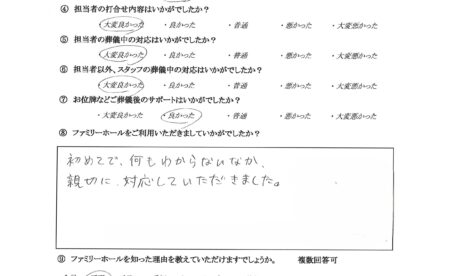 ④ 担当者の打合せ内容はいかがでしたか？
・大変良かった ・良かった ・普通 ・悪かった ・大変悪かった
⑤ 担当者の葬儀中の対応はいかがでしたか？
・大変良かった ・良かった ・普通 ・悪かった ・大変悪かった
⑥ 担当者以外、スタッフの葬儀中の対応はいかがでしたか？
・大変良かった ・良かった ・普通 ・悪かった ・大変悪かった
⑦ お位牌などご葬儀後のサポートはいかがでしたか？
・大変良かった ・良かった ・普通 ・悪かった ・大変悪かった
⑧ ファミリーホールをご利用いただきましていかがでしたか？
初めてで、何もわからないなか、
親切に、対応していただきました。
⑨ ファミリーホールを知った理由を教えていただけますでしょうか。 複数回答可